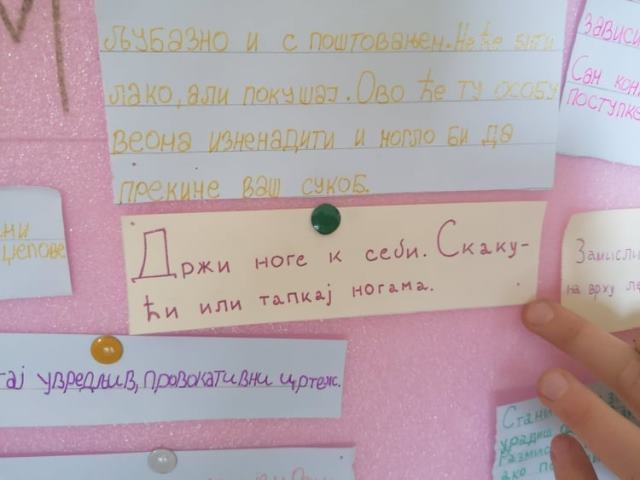 љубазно и с поштовањем. Не ће бити
лако, али покушај. Ово ће ту особу
веома изненадити и могло би да
прекине ваш сукоб.
зависи
Сан
поступке
ни
Држи ноге к себи. Скаку-
ћи или тапкај ногама.
Замисли
на врху
тај увредљив, провокативни цртеж.
Стани
урадиш
Размис
ако по